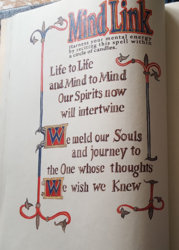 Mind Link
Harness your mental energy
by reciting this spell within
a circle of candles.
Life to Life
and Mind to Mind
Our Spirits now
will intertwine
We meld our Souls
and journey to
the One whose thoughts
We wish we Knew